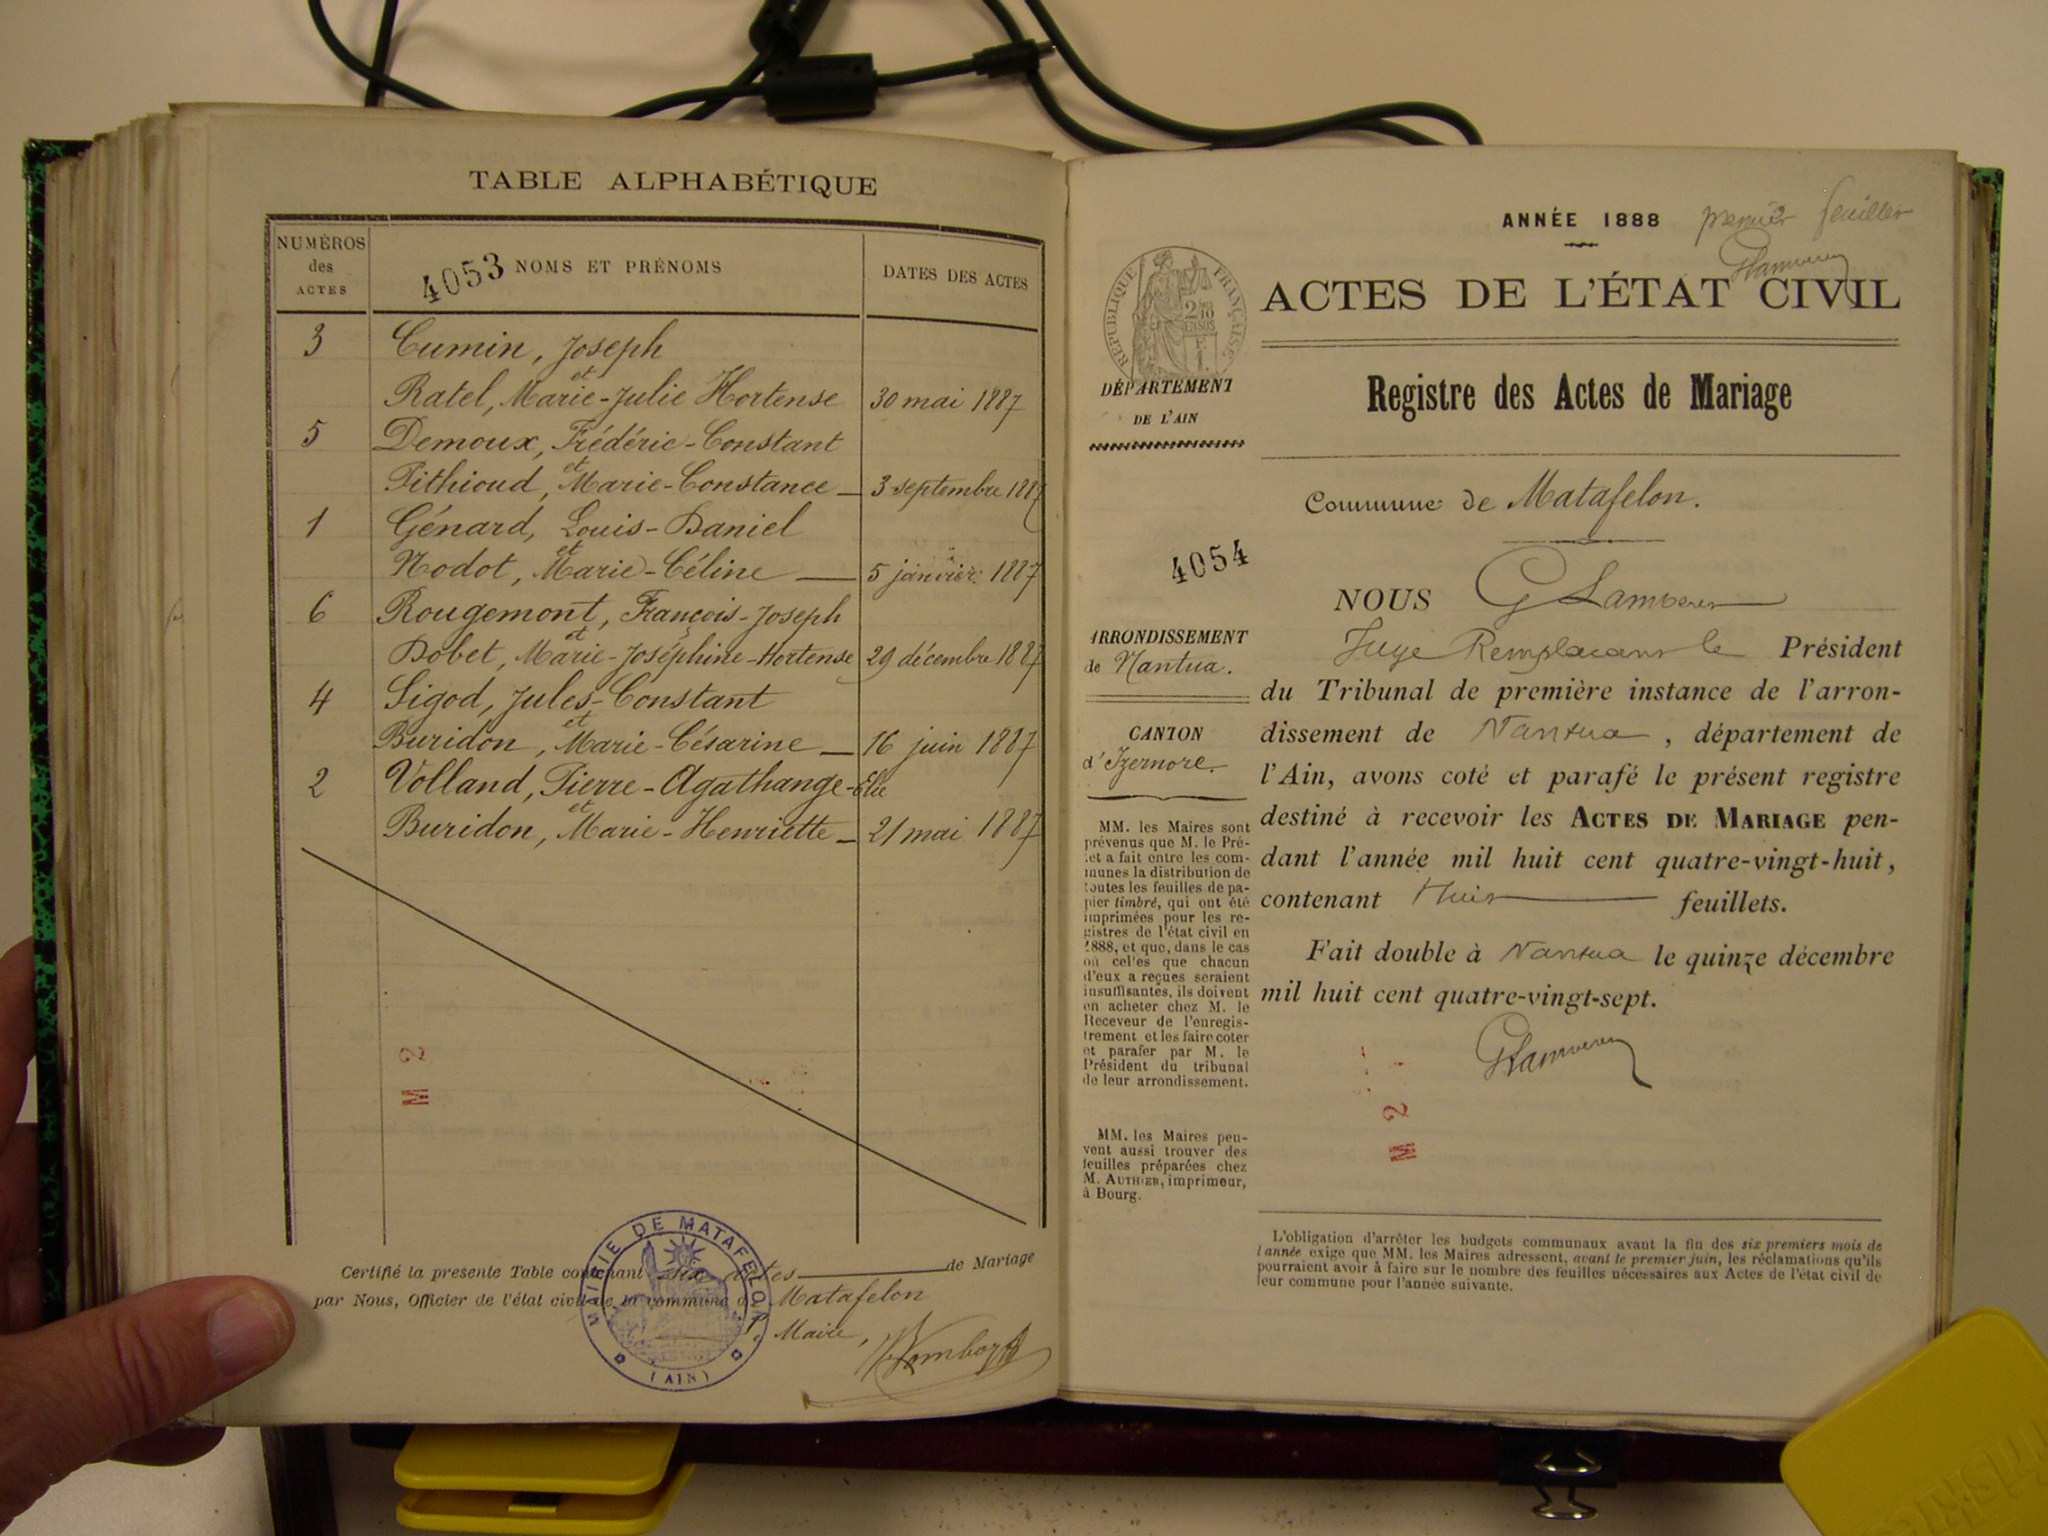 TABLE ALPHABÉTIQUE
NUMÉROS des ACTES
4053 NOMS ET PRÉNOMS
DATES DES ACTES
3 Cumin, Joseph
et
Ratel, Marie-Julie Hortense 30 mai 1887
5 Demoux, Frédéric-Constant
et
Pithioud, Marie-Constance — 3 septembre 1887
1 Génard, Louis-Daniel
et
Nodot, Marie-Céline — 5 janvier 1887
6 Rougemont, François-Joseph
et
Bobet, Marie-Joséphine-Hortense 29 décembre 1887
4 Sigod, Jules-Constant
et
Buridon, Marie-Césarine — 16 juin 1887
2 Volland, Pierre-Agathange-Elie
et
Buridon, Marie-Henriette — 21 mai 1887
M 2
Certifié la presente Table contenant six actes de Mariage
par Nous, Officier de l'état civil de la commune de Matafelon
Maire,
MAIRIE DE MATAFELON
(AIN)
ANNÉE 1888 premier feuillet
RÉPUBLIQUE FRANÇAISE
ACTES DE L'ÉTAT CIVIL
DÉPARTEMENT
DE L'AIN
Registre des Actes de Mariage
Commune de Matafelon.
4054
NOUS
Juge Remplaçant le Président
ARRONDISSEMENT
de Nantua.
du Tribunal de première instance de l'arron-
dissement de Nantua, département de
CANTON
d'Izernore.
l'Ain, avons coté et parafé le présent registre
destiné à recevoir les ACTES DE MARIAGE pen-
dant l'année mil huit cent quatre-vingt-huit,
contenant Huit feuillets.
Fait double à Nantua le quinze décembre
mil huit cent quatre-vingt-sept.
MM. les Maires sont
prévenus que M. le Pré-
fet a fait entre les com-
munes la distribution de
toutes les feuilles de pa-
pier timbré, qui ont été
imprimées pour les re-
gistres de l'état civil en
1888, et que, dans le cas
où celles que chacun
d'eux a reçues seraient
insuffisantes, ils doivent
en acheter chez M. le
Receveur de l'enregis-
trement et les faire coter
et parafer par M. le
Président du tribunal
de leur arrondissement.
M 2
MM. les Maires peu-
vent aussi trouver des
feuilles préparées chez
M. AUTHIER, imprimeur,
à Bourg.
L'obligation d'arrêter les budgets communaux avant la fin des six premiers mois de
l'année exige que MM. les Maires adressent, avant le premier juin, les réclamations qu'ils
pourraient avoir à faire sur le nombre des feuilles nécessaires aux Actes de l'état civil de
leur commune pour l'année suivante.